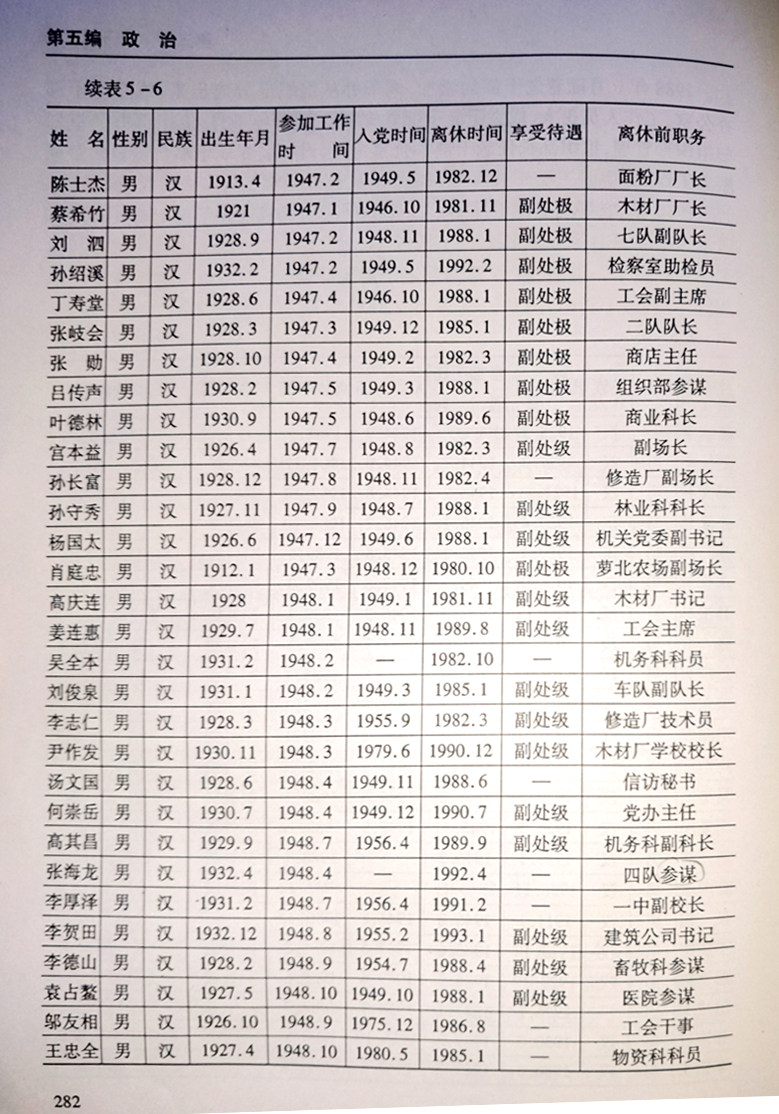 第五编 政 治
续表5-6
姓 名 性别 民族 出生年月 参加工作时 间 入党时间 离休时间 享受待遇 离休前职务
陈士杰 男 汉 1913.4 1947.2 1949.5 1982.12 — 面粉厂厂长
蔡希竹 男 汉 1921 1947.1 1946.10 1981.11 副处极 木材厂厂长
刘 泗 男 汉 1928.9 1947.2 1948.11 1988.1 副处极 七队副队长
孙绍溪 男 汉 1932.2 1947.2 1949.5 1992.2 副处极 检察室助检员
丁寿堂 男 汉 1928.6 1947.4 1946.10 1988.1 副处极 工会副主席
张岐会 男 汉 1928.3 1947.3 1949.12 1985.1 副处极 二队队长
张 勋 男 汉 1928.10 1947.4 1949.2 1982.3 副处极 商店主任
吕传声 男 汉 1928.2 1947.5 1949.3 1988.1 副处极 组织部参谋
叶德林 男 汉 1930.9 1947.5 1948.6 1989.6 副处极 商业科长
宫本益 男 汉 1926.4 1947.7 1948.8 1982.3 副处级 副场长
孙长富 男 汉 1928.12 1947.8 1948.11 1982.4 — 修造厂副场长
孙守秀 男 汉 1927.11 1947.9 1948.7 1988.1 副处级 林业科科长
杨国太 男 汉 1926.6 1947.12 1949.6 1988.1 副处级 机关党委副书记
肖庭忠 男 汉 1912.1 1947.3 1948.12 1980.10 副处极 萝北农场副场长
高庆连 男 汉 1928 1948.1 1949.1 1981.11 副处级 木材厂书记
姜连惠 男 汉 1929.7 1948.1 1948.11 1989.8 副处级 工会主席
吴全本 男 汉 1931.2 1948.2 — 1982.10 — 机务科科员
刘俊泉 男 汉 1931.1 1948.2 1949.3 1985.1 副处级 车队副队长
李志仁 男 汉 1928.3 1948.3 1955.9 1982.3 副处级 修造厂技术员
尹作发 男 汉 1930.11 1948.3 1979.6 1990.12 副处级 木材厂学校校长
汤文国 男 汉 1928.6 1948.4 1949.11 1988.6 — 信访秘书
何崇岳 男 汉 1930.7 1948.4 1949.12 1990.7 副处级 党办主任
高其昌 男 汉 1929.9 1948.7 1956.4 1989.9 副处级 机务科副科长
张海龙 男 汉 1932.4 1948.4 — 1992.4 — 四队参谋
李厚泽 男 汉 1931.2 1948.7 1956.4 1991.2 — 一中副校长
李贺田 男 汉 1932.12 1948.8 1955.2 1993.1 副处级 建筑公司书记
李德山 男 汉 1928.2 1948.9 1954.7 1988.4 副处级 畜牧科参谋
袁占鳌 男 汉 1927.5 1948.10 1949.10 1988.1 副处级 医院参谋
邬友相 男 汉 1926.10 1948.9 1975.12 1986.8 — 工会干事
王忠全 男 汉 1927.4 1948.10 1980.5 1985.1 — 物资科科员
282